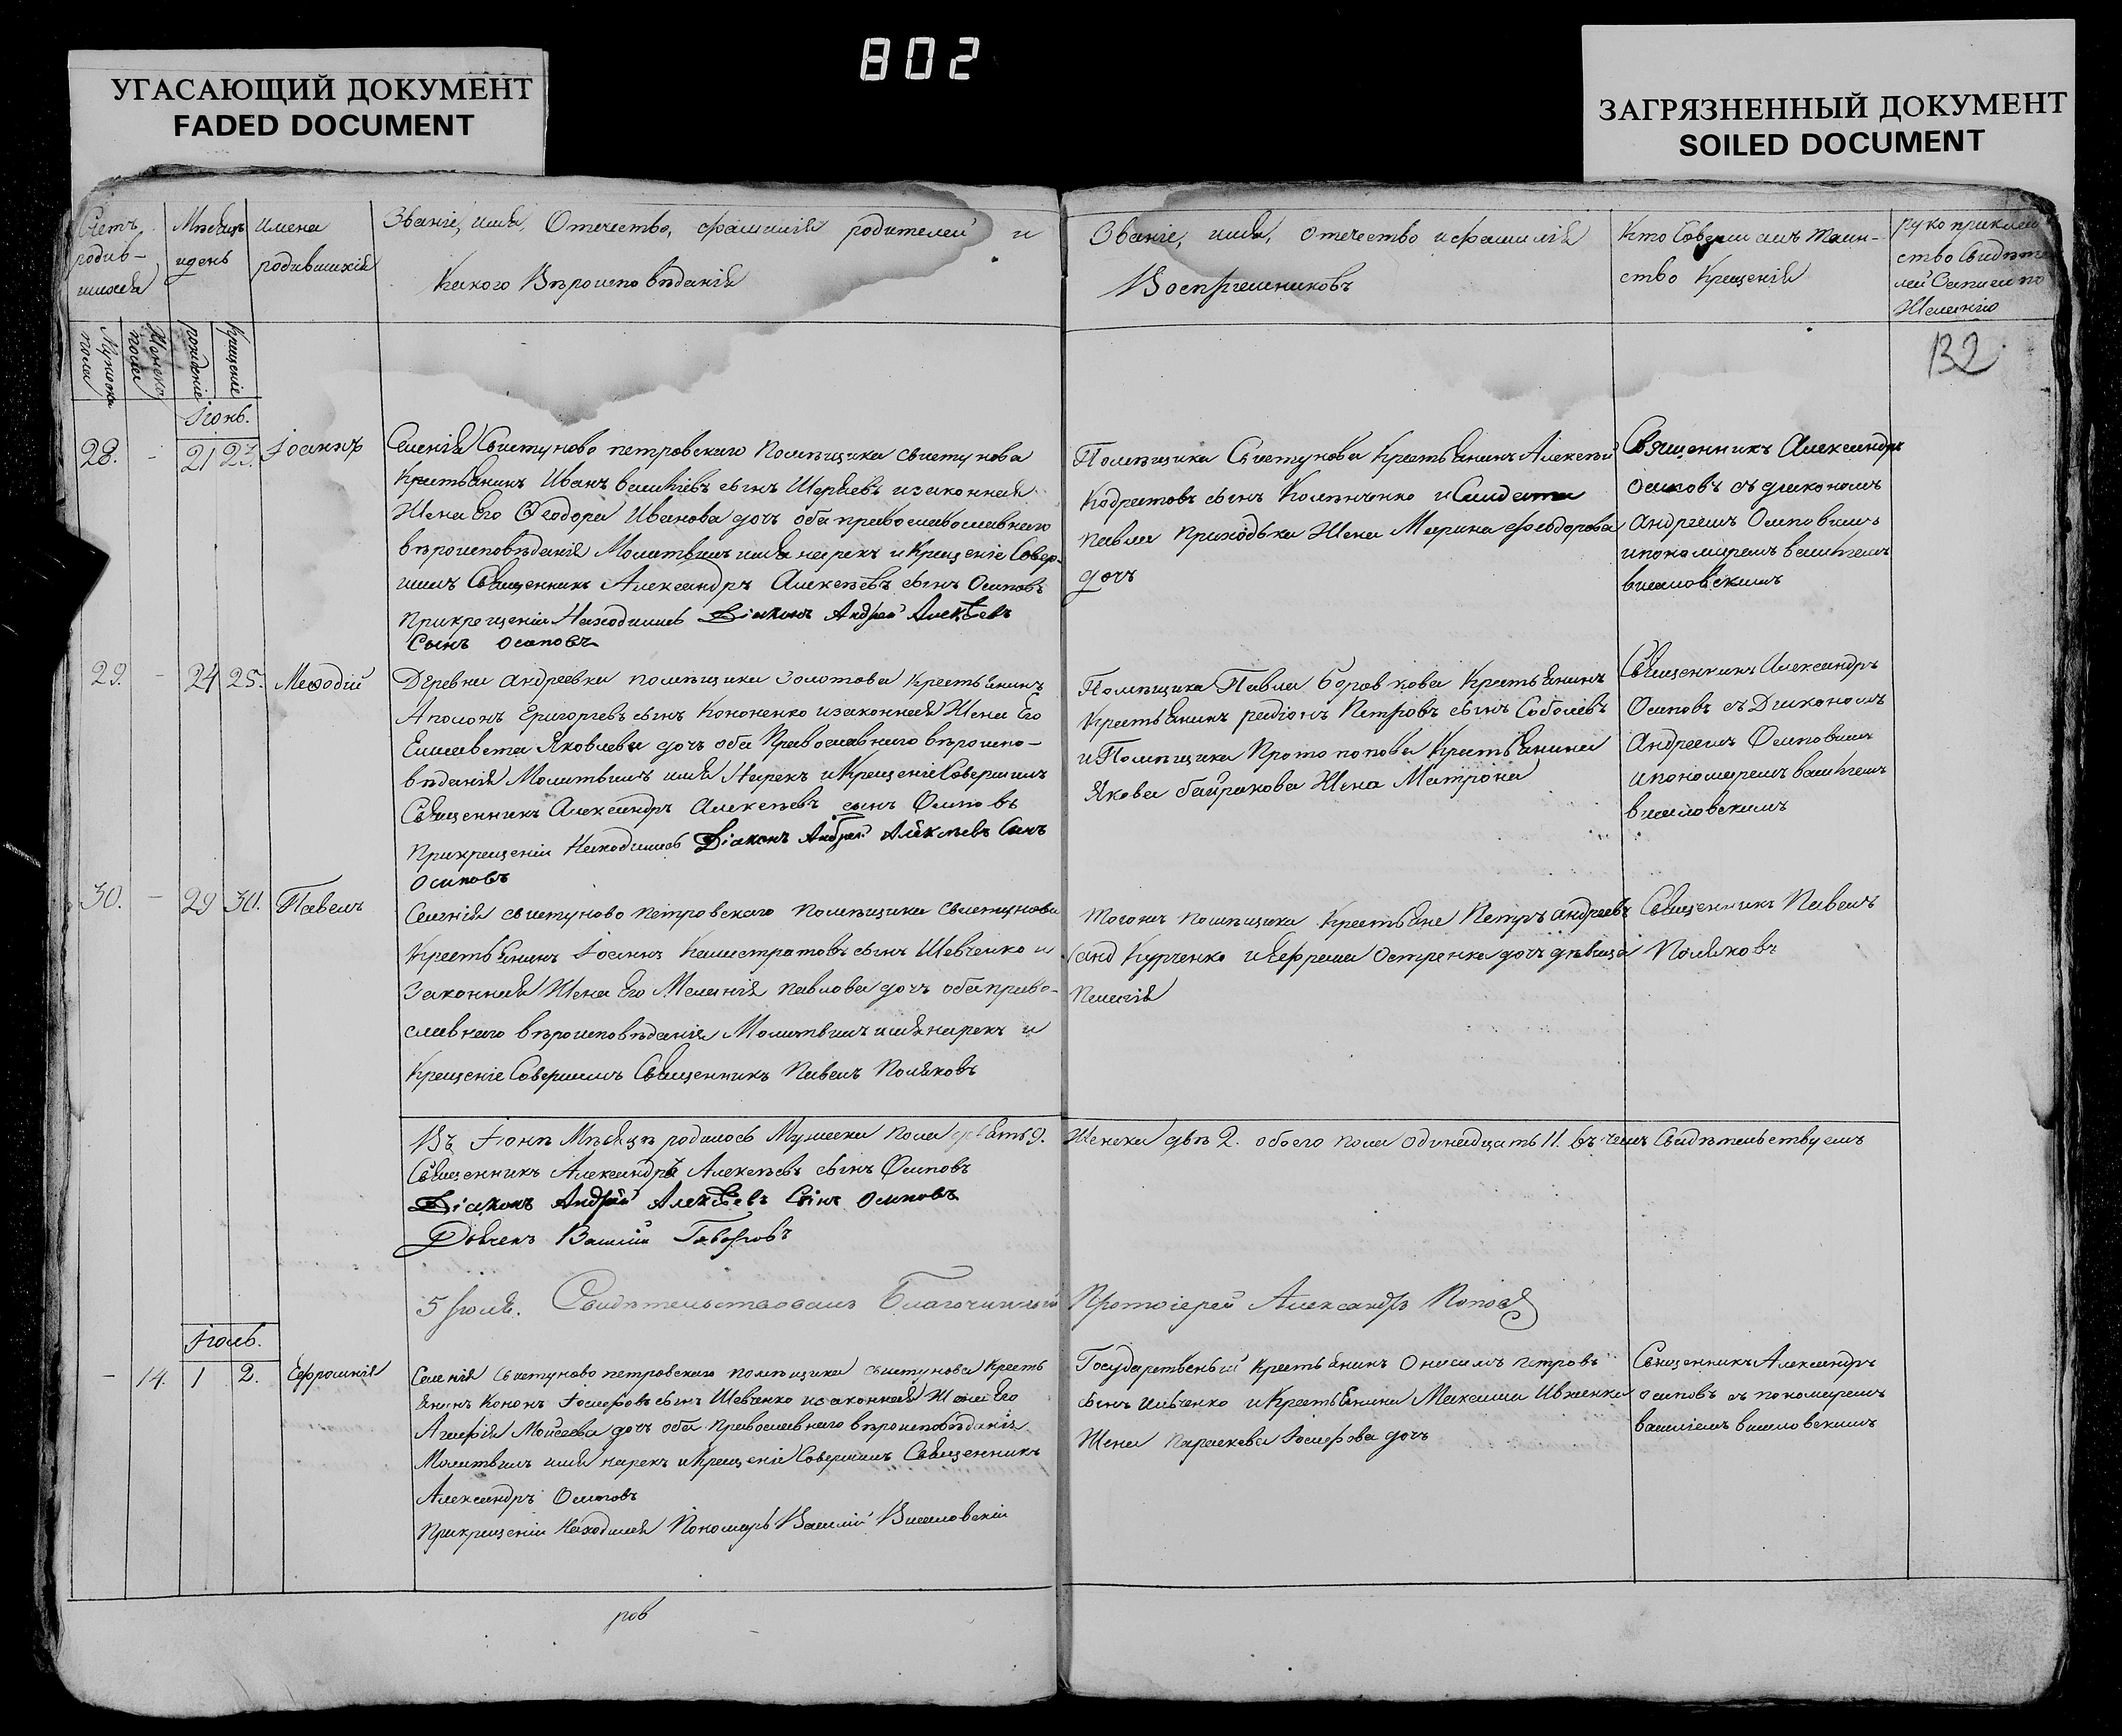 802
УГАСАЮЩИЙ ДОКУМЕНТ
FADED DOCUMENT
ЗАГРЯЗНЕННЫЙ ДОКУМЕНТ
SOILED DOCUMENT
Счетъ родив-шихся
Мѣсяцъ и день
имена родившихся
Званіе, имя, Отечество, фамилія родителей и
Какого Вѣроисповѣданія
Званіе, имя, отечество и фамилія
Воспріемниковъ
Кто Совершалъ таин-
ство Крещенія
руко приклад
ство Свидѣте
лей Записи по
Желанію
132
Мужска пола
Женска пола
рожденіе
Крещеніе
Іюнь.
28. - 21 23. Іоаннъ
Селенія Свистуново петровскаго Помѣщика свистунова
Крестьянинъ Иванъ василіевъ сынъ и законная
Жена Его Феодора Иванова дочъ оба православнаго
вѣроисповѣданія Молитвилъ имя нарекъ и Крещеніе Совер-
шилъ Священникъ Александръ Алексѣевъ сынъ Осиповъ
При крещеніи Находились Діаконъ Андрей Алексѣевъ
Сынъ Осиповъ
Помѣщика Свистунова Крестьянинъ Алексѣй
Кодратовъ сынъ и Салдата
павла приходька Жена Марина федорова
дочъ
Священникъ Александръ
осиповъ съ диакономъ
андреемъ Осиповимъ
и пономаремъ василіемъ
висиловскимъ
29. - 24 25. Меѳодій
Деревни андреевки помѣщика золотова крестьянинъ
Аполонъ Григоріевъ сынъ Кононенко и законная Жена Его
Елисавета Яковлева дочъ оба Православнаго вѣроиспо-
вѣданія Молитвилъ имя Нарекъ и Крещеніе Совершилъ
Священникъ Александръ Алексѣевъ сынъ Осиповъ
При крещеніи Находились Діаконъ Андрей Алексѣевъ Синъ
Осиповъ
Помѣщика Павла боровкова Крестьянинъ
Крестьянинъ радіонъ Петровъ сынъ Соболевъ
и Помѣщика Протопопова Крестьянина
Якова байракова Жена Матрона
Священникъ Александръ
Осиповъ съ Диакономъ
Андреемъ Осиповимъ
и пономаремъ василіемъ
висиловскимъ
30. - 29 30. Павелъ
Селенія свистуново петровскаго помѣщика свистунова
Крестьянинъ Іоаннъ Калистратовъ сынъ Шевченко и
Законная Жена Его Меланія павлова дочъ оба право-
славнаго вѣроисповѣданія Молитвилъ имя нарекъ и
Крещеніе Совершилъ Священникъ Павелъ Поляковъ
того жъ помѣщика Крестьяне Петръ андреевъ
синъ Курченко и Ефрема Остренка дочъ дѣвица
Пелагія
Священникъ Павелъ
Поляковъ
Въ Іюнѣ Мѣсяцѣ родилось Мужеска пола девять 9. Женска двѣ 2. обоего пола одинадцать 11. въ чемъ Свидѣтельствуемъ
Священникъ Александръ Алексѣевъ сынъ Осиповъ
Діаконъ Андрей Алексѣевъ Синъ Осиповъ
Дьячекъ Василій Говоровъ
5 Іюля. Свидѣтельствовалъ Благочинный Протоіерей Александръ Поповъ
Іюль.
- 14. 1 2. Ефросинія
Селенія свистуново петровскаго помѣщика свистунова Кресть
янинъ Кононъ Іосифовъ сынъ Шевченко и законная Жена Его
Агафія Мойсеева дочъ оба Православнаго вѣроисповѣданія
Молитвилъ имя нарекъ и Крещеніе Совершилъ Священникъ
Александръ Осиповъ
При крещеніи Находился Пономарь Василій Висиловскій
Государственый крестьянинъ Онисимъ петровъ
сынъ Ильченко и Крестьянина Максима Ивженка
Жена параскева Іосифова дочъ
Священникъ Александръ
осиповъ съ пономаремъ
василіемъ висиловскимъ
ров